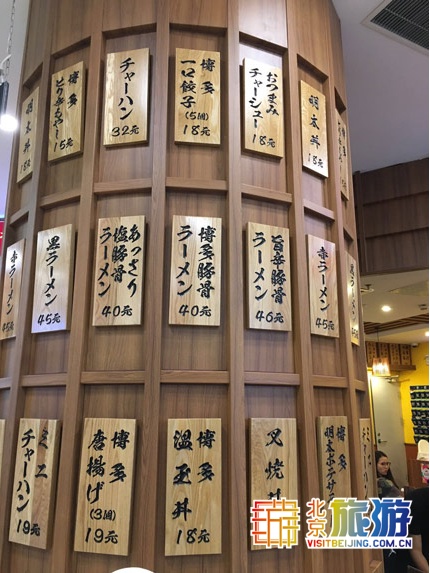 明太丼
18元
博多
とり辛もやし
15元
チャーハン
32元
博多
一口餃子
(5個)
18元
おつまみ
チャーシュー
18元
明太丼
15元
赤ラーメン
45元
黒ラーメン
45元
あっさり
塩豚骨
ラーメン
40元
博多豚骨
ラーメン
40元
旨辛豚骨
ラーメン
46元
赤ラーメン
45元
ミニ
チャーハン
19元
博多
唐揚げ
(3個)
19元
博多
温玉丼
18元
叉焼丼
博多
明太ポテサラ
北京旅游
VISITBEIJING.COM.CN